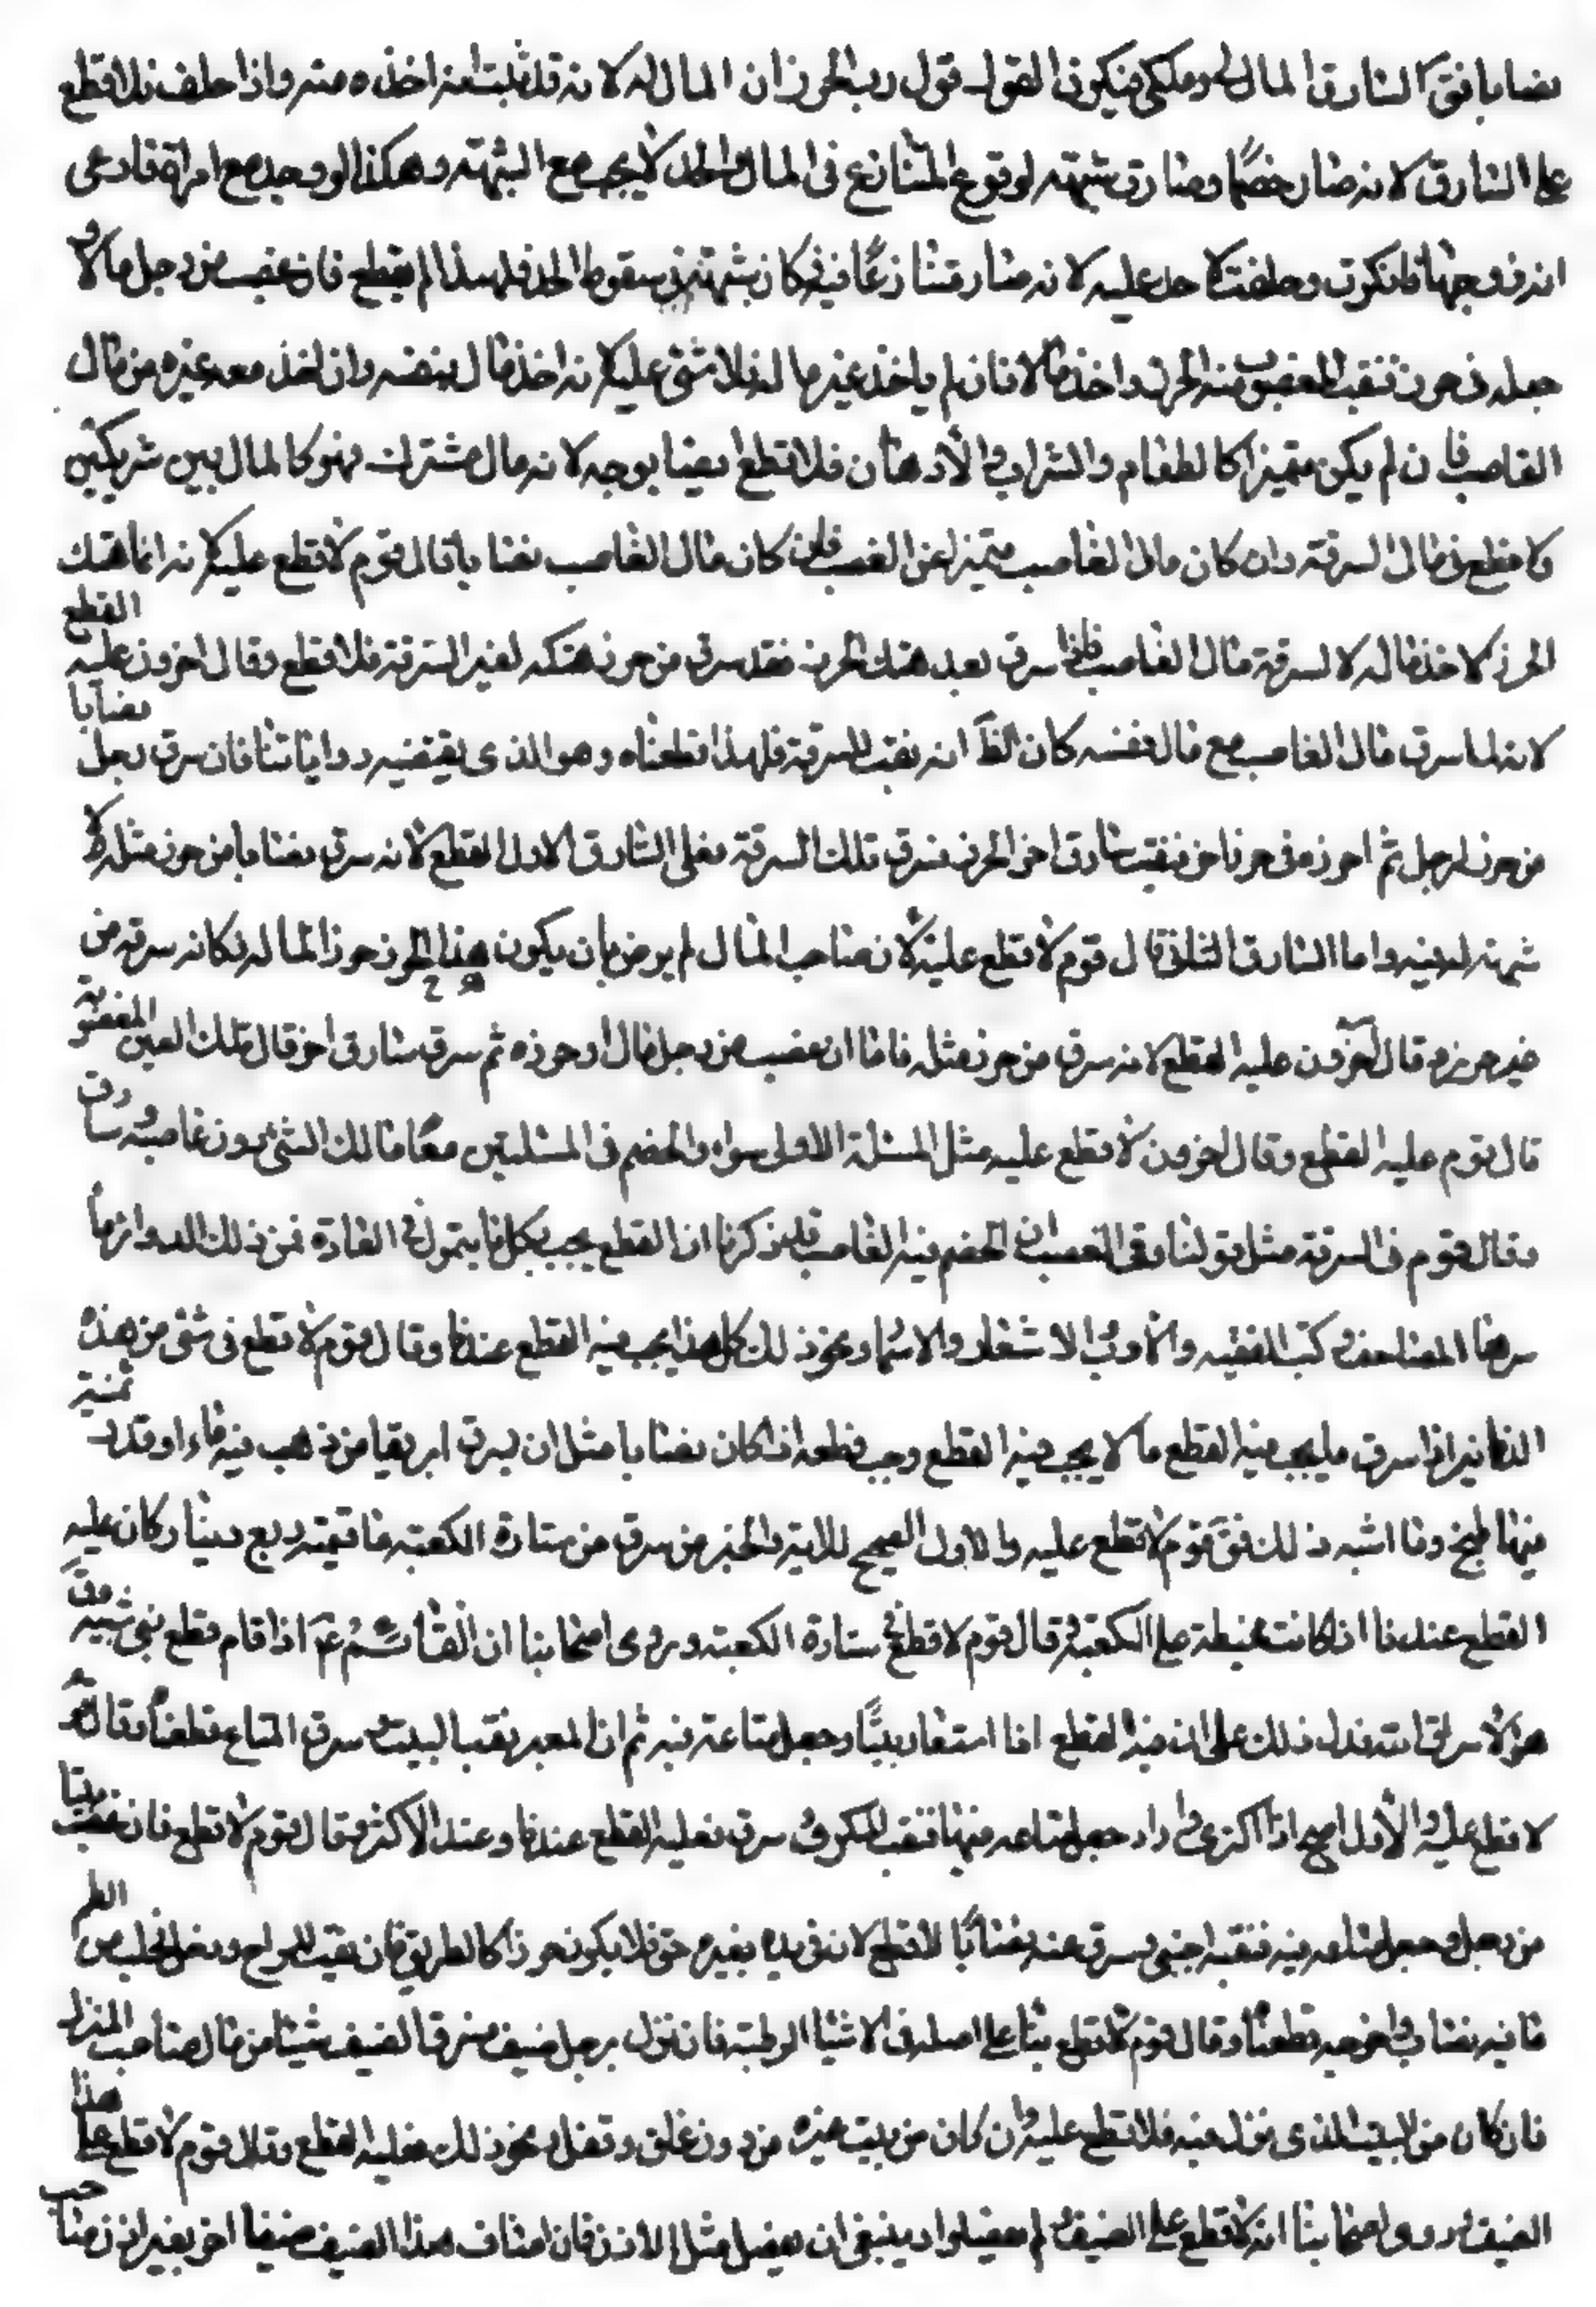 نصابا فقَ السارق المال لى وملكى فيكون القول قول رب الحرز ان المال له لانه قد ثبت انه اخذه منه واذا حلف فلا قطع
على السارق لانه صار خصمًا وصارت شبهته لوقوع التنازع فى المال والحد لا يجب مع الشبهة وهكذا لو وجد مع امراة فادعى
انه زوجها فانكرت وحلفت لا حد عليه لانه صار متنازعًا فيه فكان شبهة فى سقوط الحد فلهذا لم يقطع فان غصب من رجل مالا و
جعله فى حرز فنقب المغصوب منه الحرز واخذ مالا فان لم ياخذ غير ماله فلا شئ عليه لانه اخذ مال نفسه وان اخذ معه غيره من مال
الغاصب فان لم يكن متميزا كالطعام والشراب والأدهان فلا قطع ايضا بوجه لانه مال مشترك فهو كالمال بين شريكين
ولا قطع فى مال السرقة وان كان مال الغاصب متميزا عن الغصب فان كان مال الغاصب نصابا قال قوم لا قطع عليه لانه انما هتك
الحرز لاخذ ماله لا لسرقة مال الغاصب فاذا سرق بعد هتك الحرز فقد سرق من حرز هتكه لغير السرقة فلا قطع وقال اخرون عليه القطع
لانه لما سرق مال الغاصب مع مال نفسه كان الظَ انه نقب للسرقة فلهذا قطعناه وهو الذى يقتضيه رواياتنا فان سرق رجل نصابا
من حرز لرجل ثم احرزه فى حرز اخر فنقب سارق اخر الحرز فسرق تلك السرقة فعلى السارق الاول القطع لانه سرق نصابا من حرز مثله لا
شبهة له فيه واما السارق الثانى قال قوم لا قطع عليه لان صاحب المال لم يرض بان يكون هذا الحرز حرزا لماله فكانه سرقه من
غير حرز وقال آخرون عليه القطع لانه سرق من حرز مثله فاما ان غصب من رجل مالا وحرزه ثم سرق سارق اخر قال تلك العين المغصوبة
قال قوم عليه القطع وقال اخرون لا قطع عليه مثل المسئلة الاولى سواء والخصم فى المسئلتين معًا مالك الشئ دون غاصبه وسارقه
وقال قوم فى السرقة مثل قولنا وفى الغصب ان الخصم فيه الغاصب قد ذكرنا ان القطع يجب بكل ما يتمول فى العادة فمن ذلك الدواء انما
سرها المصاحف وكتب الفقه والأدب والاشعار والاسمار ونحو ذلك كل هذا يجب فيه القطع عندنا وقال قوم لا قطع فى شئ من هذه
الدنانير اذا سرق ما يجب فيه القطع مع ما لا يجب فيه القطع وجب قطعه اذا كان نصابا مثل ان يسرق ابريقا من ذهب فيه ماء او قدر ثمينة
فيها طبيخ وما اشبه ذلك فقَ قوم لا قطع عليه والاول الصحيح للاية والخبر من سرق من ستارة الكعبة ما قيمته ربع دينار كان عليه
القطع عندنا اذا كانت مخيطة على الكعبة وقال قوم لا قطع فى ستارة الكعبة وروى اصحابنا ان القائم عَ اذا قام قطع بنى شيبة وقَ
هؤلاء سراق الله فدل ذلك على ان فيه القطع اذا استعار بيتًا وجعل متاعه فيه ثم ان المعير نقب البيت وسرق المتاع قطعناه وقال قوم
لا قطع عليه والأول اصح اذا اكترى دارا وجعل متاعه فيها فنقب المكرى وسرق فعليه القطع عندنا وعند الاكثر وقال قوم لا قطع فان غصب بيتا
من رجل وجعل متاعه فيه فنقبه اجنبى وسرق منه نصابًا لا قطع لانه فى يده بغير حق فلا يكون حرزا كالطريق فان نقب المراح ودخل فحلب من الغنم
ما فيه نصاب واخرجه قطعناه وقال قوم لا قطع بناء على اصله فى الاشياء الرطبة فان نزل برجل ضيف فسرق الضيف شيئا من مال صاحب المنزل
فان كان من البيت الذى نزل فيه فلا قطع عليه وان كان من بيت غيره من دون غلق وقفل ونحو ذلك فعليه القطع وقال قوم لا قطع على هذا
الضيف وروى اصحابنا انه لا قطع على الضيف ولم يفصلوا وينبغى ان يفصل مثل الاذن فان اضاف هذا الضيف ضيفا اخر بغير اذن صاحب